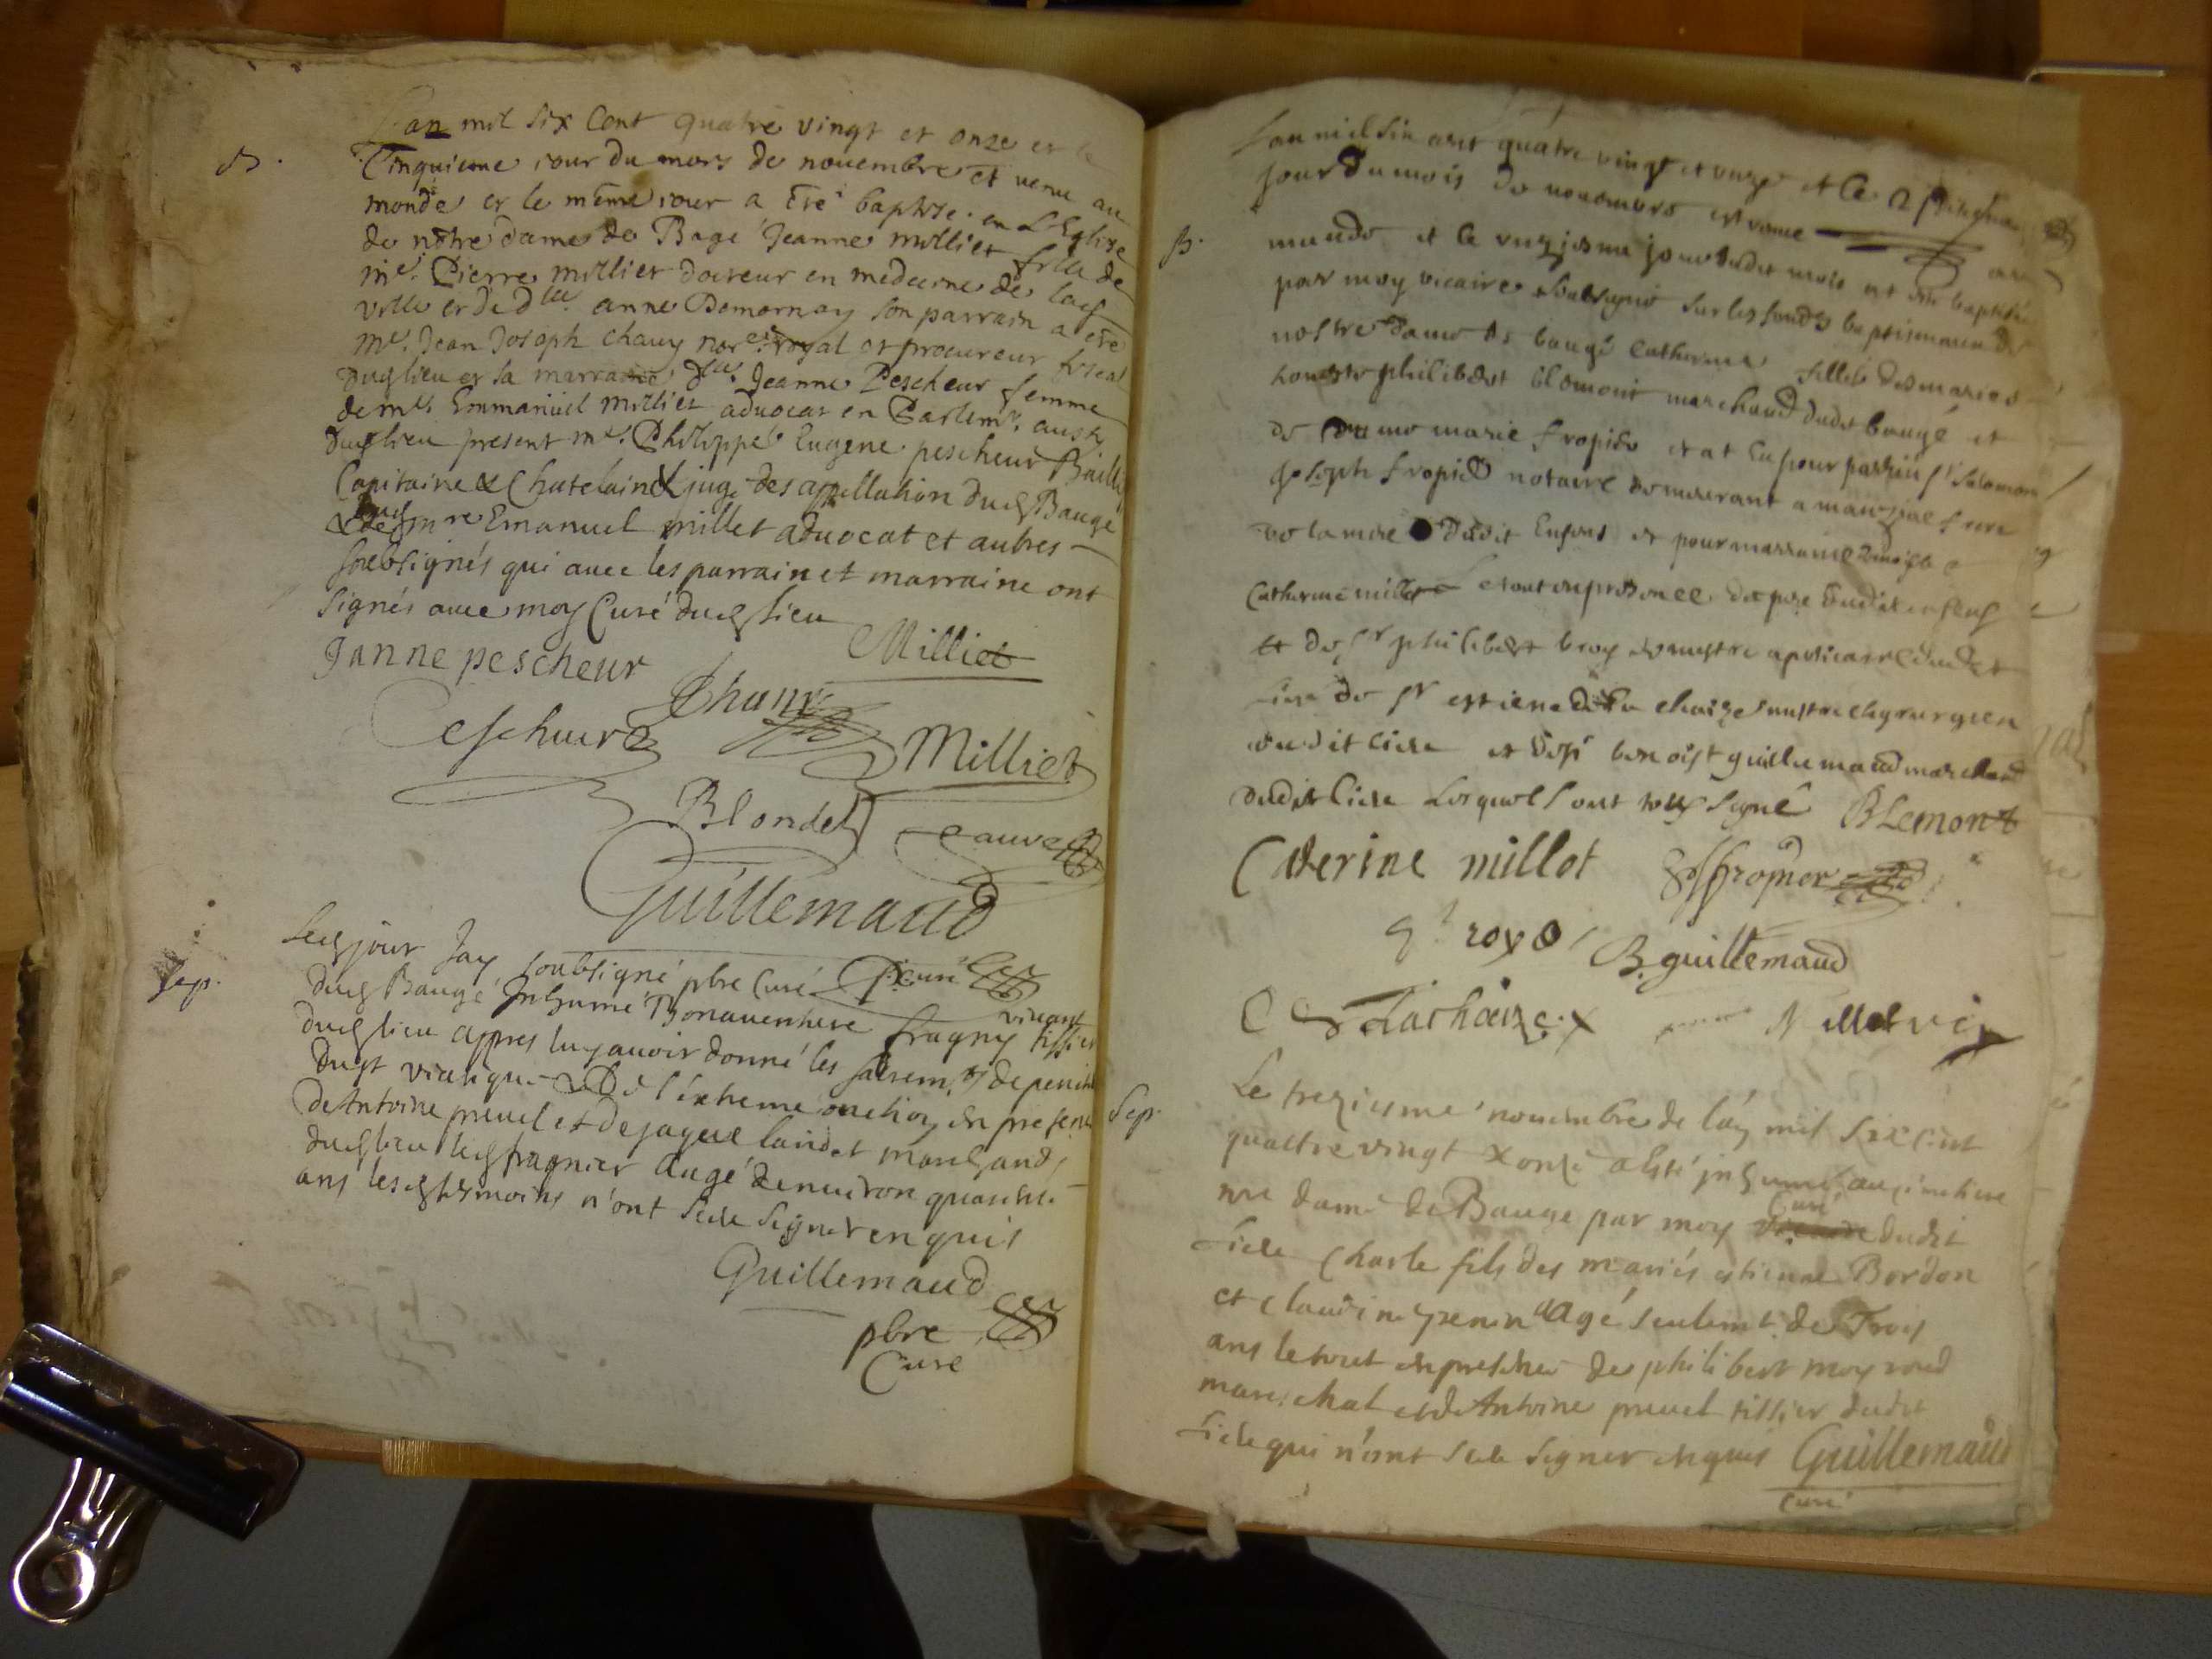 B.
L'an mil six Cent quatre vingt et onze et le
Cinquieme iour du mois de nouembre est venue au
monde et le même iour a êté baptisée en L'Eglise
de nôtre dame de Bagé Jeanne milliet fille de
me. Pierre milliet docteur en medecine de lad
ville et de dlle. anne Demornay son parrain a êté
me. Jean Joseph chauy nore. royal et procureur fiscal
dud lieu et sa marraine dlle. Jeanne Pescheur femme
de me. Emmanuel milliet aduocat en Parlemt. aussy
dud lieu present me. Philippe Eugene pescheur Bailly
Capitaine & Chatelain & juge des appellation dud Bauge
& dud mre Emanuel millet aduocat et autres
soubsignés qui auec les parrain et marraine ont
signés auec moy Curé dud lieu
Janne pescheur Milliet
Chauy
Pescheur Milliet
Blondel
Guillemaud
Curé
Sep.
Led jour Jay soubsigné pbre Curé
dud Baugé Inhumé Bonauenture fragny viuant tissier
dud lieu appres luy auoir donné les sacremts de penit
du st viatique & de l'extreme onction en presence
de Antoine preuel et de jaque landet marchands
dud lieu led fragnier âugé denuiron quarente
ans lesd tesmoins n'ont sceu signer enquis
Guillemaud
pbre
Curé
B.
L'an mil six cent quatre vingt et unze et le
jour du mois de nouembre est venue au
monde et le unziesme jour dudit mois at esté baptisée
par moy vicaire soubsigné sur les fonds baptismaux de
nostre dame de baugé Catherine fillie des maries
honeste philibert blemont marchand dudit baugé et
de dame marie fropier et at eu pour parrein sr Salomon
Joseph fropier notaire demeurant a manziat frere
de la mere dudit Enfant et pour marraine damoiselle
Catherine millet le tout en presence du pere dudit enfent
et de sr philibert broy maystre apoticaire dudit
lieu de sr estiene de la chaize mastre chyrurgien
dudit lieu et de sr benoist guillemaud marchand
dudit lieu Lesquels ont tous signé BLemont
Caterine millot
B. guillemaud
Delachaize
Millet vic
Sep.
Le treziesme nouembre de l'an mil six cent
quattre vingt & onze a esté inhumé au cimetiere
nre dame de Bauge par moy Curé dudit
Lieu Charle fils des mariés estienne Bordon
et Claudine grenin Agé seulemt. de Trois
ans le tout en presence de philibert moyroud
mareschal et de Antoine preuel tissier dudit
Lieu qui n'ont sceu signer enquis Guillemaud
Curé